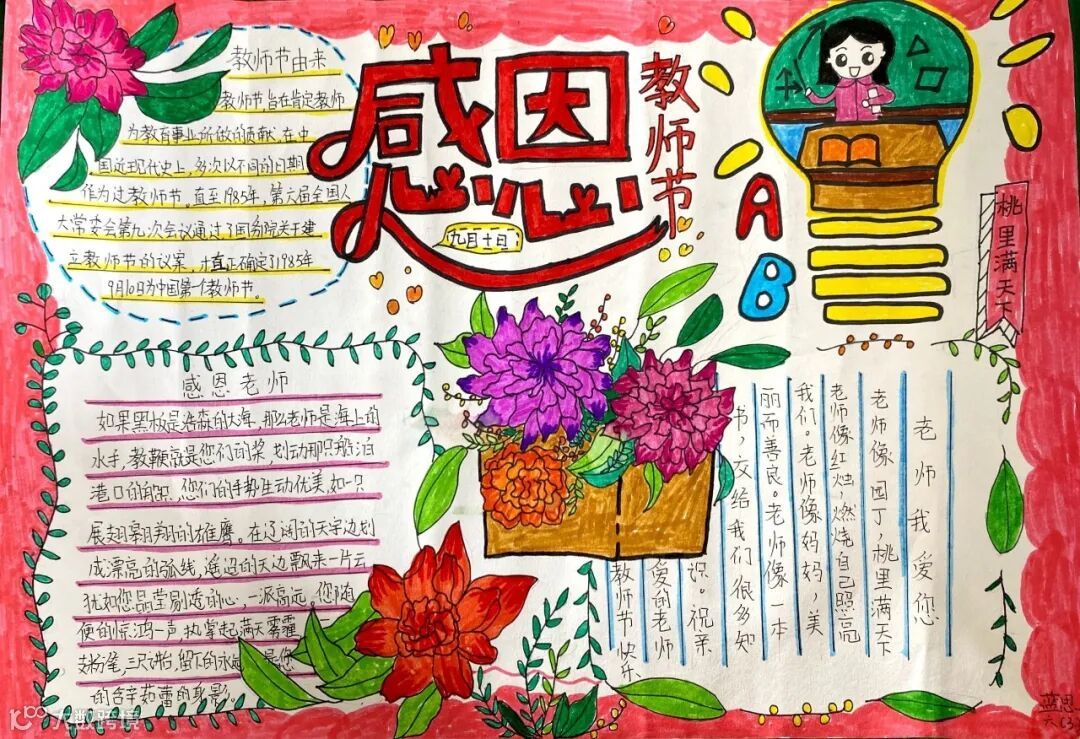 教师节由来
教师节,旨在肯定教师
为教育事业所做的贡献,在中
国近现代史上,多次以不同的日期
作为过教师节。直至1985年,第六届全国人
大常委会第九次会议通过了国务院关于建
立教师节的议案,才真正确定了1985年
9月10日为中国第一个教师节。
感恩
教师节
九月十日
A
B
桃里满天下
感恩老师
如果黑板是浩淼的大海,那么老师是海上的
水手,教鞭就是您们的桨,划动那只船泊
港口的 您们的手势生动优美,如一只
展翅翱翔的雄鹰。在辽阔的天宇边划
成漂亮的弧线,遥远的天边飘来一片云
犹如您晶莹剔透的心,一派高远。您随
便的惊鸿一声,执掌起满天雾霾
支粉笔,三尺讲台,留下的永远 是您
的含辛茹蕾的身影。
老师我爱您
老师像园丁,桃里满天下
老师像红烛,燃烧自己照亮
我们。老师像妈妈,美
丽而善良。老师像一本
书,交给我们很多知
识。祝亲
爱的老师
教师节快乐
蓝思
六(3
大数跨境